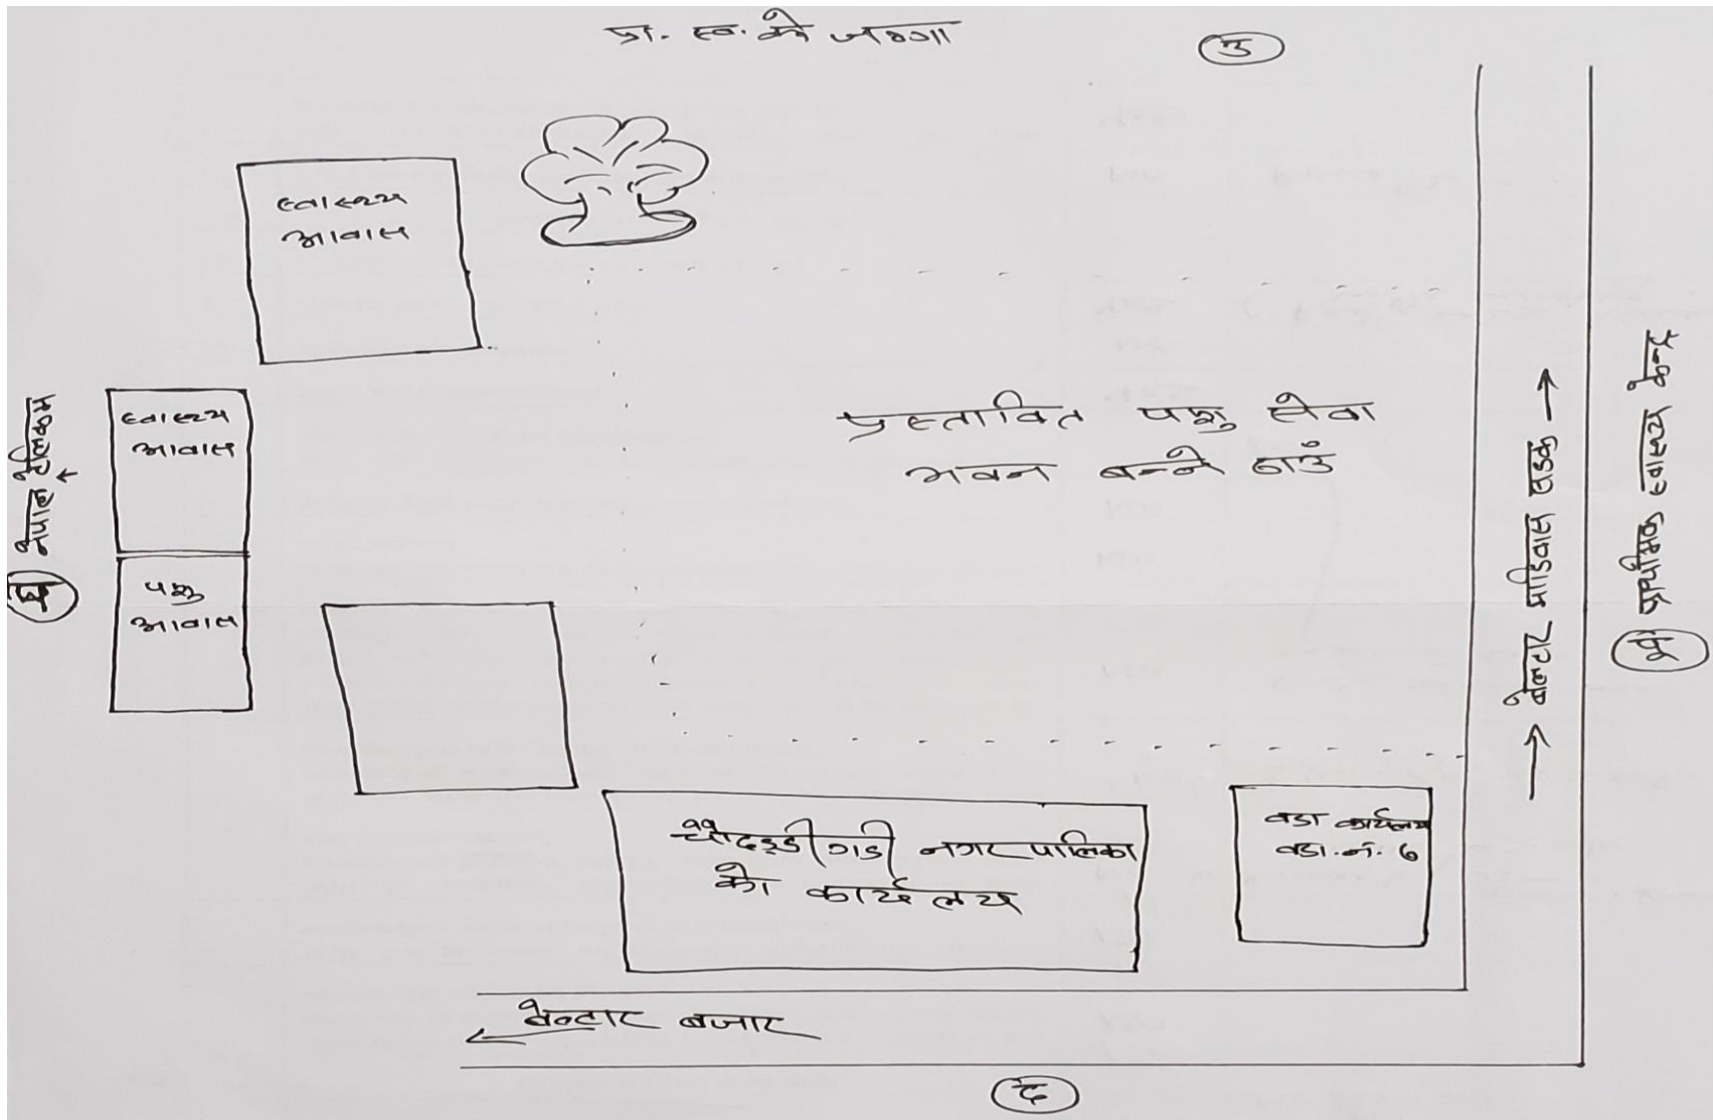 प्रा. स्व. को जग्गा
उ
स्वास्थ्य
आवास
स्वास्थ्य
आवास
पशु
आवास
नेपाल टेलिकम
प्रस्तावित पशु सेवा
भवन बन्ने ठाउँ
बेलटार माडिवास सडक
प्राथमिक स्वास्थ्य केन्द्र
पू
चौदण्डीगढी नगरपालिका
को कार्यलय
वडा कार्यलय
वडा.नं. ७
बेल्टार बजार
द